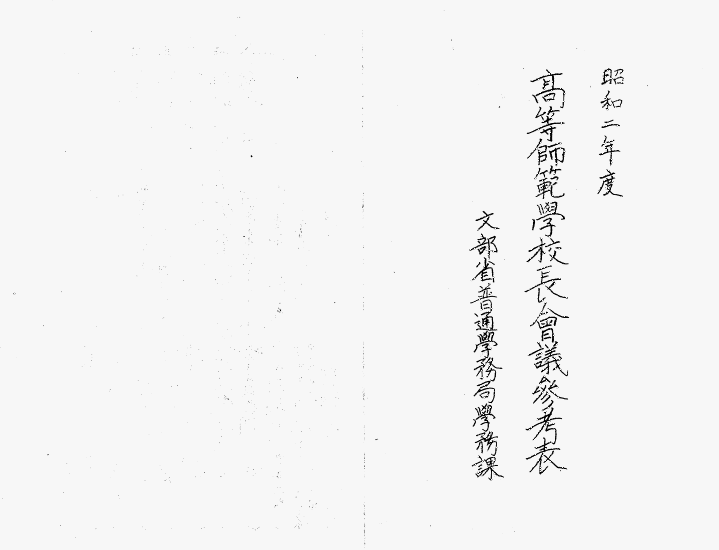 昭和二年度
高等師範學校長會議參考表
文部省普通學務局學務課